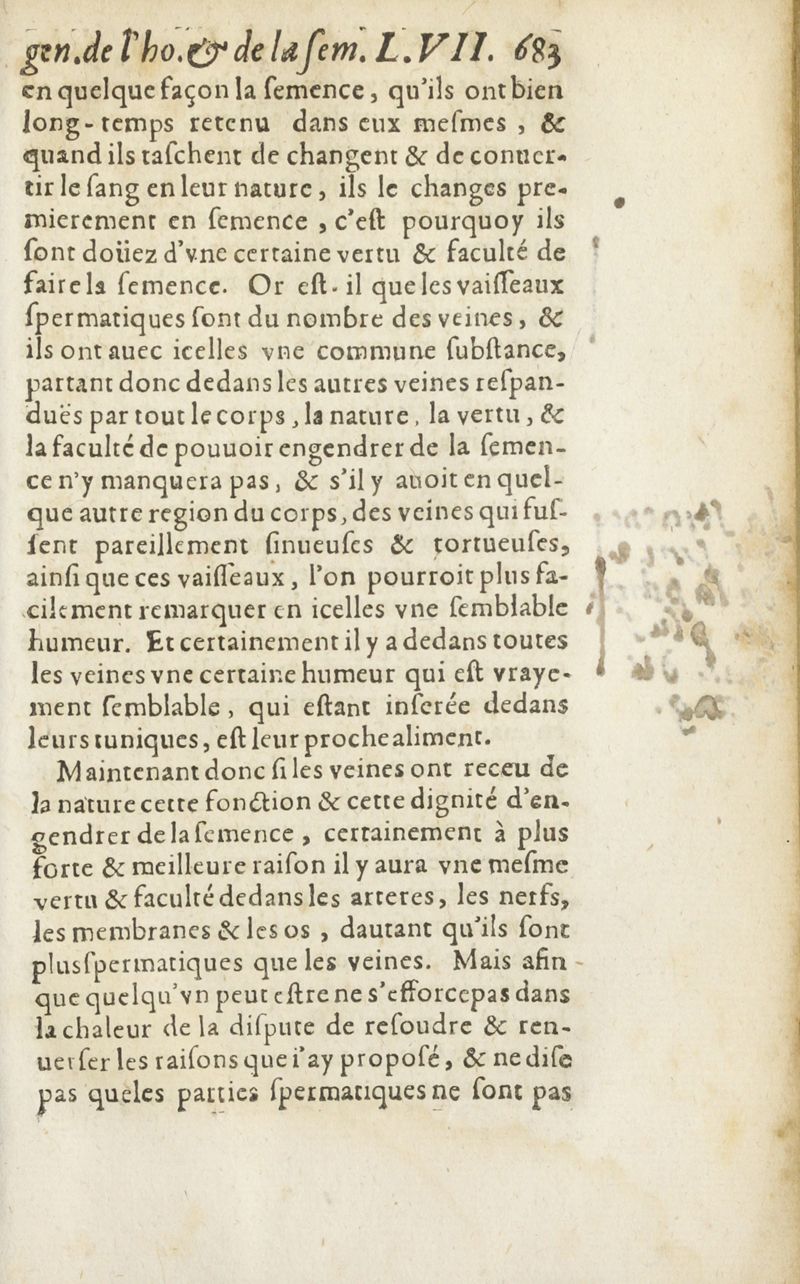 gen.de l'ho.& de la fem. L.VII. 683
en quelque façon la ſemence, qu'ils ont bien
long-temps retenu dans eux meſmes , &
quand ils taſchent de changent & de conuer-
tir le ſang en leur nature, ils le changes pre-
mierement en ſemence , c'eſt pourquoy ils
ſont doüez d'vne certaine vertu & faculté de
faire la ſemence. Or eſt-il que les vaiſſeaux
ſpermatiques ſont du nombre des veines, &
ils ont auec icelles vne commune ſubſtance,
partant donc dedans les autres veines reſpan-
duës par tout le corps, la nature, la vertu, &
la faculté de pouuoir engendrer de la ſemen-
ce n'y manquera pas, & s'il y auoit en quel-
que autre region du corps, des veines qui fuſ-
ſent pareillement ſinueuſes & tortueuſes,
ainſi que ces vaiſſeaux, l'on pourroit plus fa-
cilement remarquer en icelles vne ſemblable
humeur. Et certainement il y a dedans toutes
les veines vne certaine humeur qui eſt vraye-
ment ſemblable, qui eſtant inſerée dedans
leurs tuniques, eſt leur proche aliment.
Maintenant donc ſi les veines ont receu de
la nature cette fonction & cette dignité d'en-
gendrer de la ſemence , certainement à plus
forte & meilleure raiſon il y aura vne meſme
vertu & faculté dedans les arteres, les nerfs,
les membranes & les os , dautant qu'ils ſont
plus ſpermatiques que les veines. Mais afin
que quelqu'vn peut eſtre ne s'efforce pas dans
la chaleur de la diſpute de reſoudre & ren-
uerſer les raiſons que i'ay propoſé, & ne diſe
pas que les parties ſpermatiques ne ſont pas